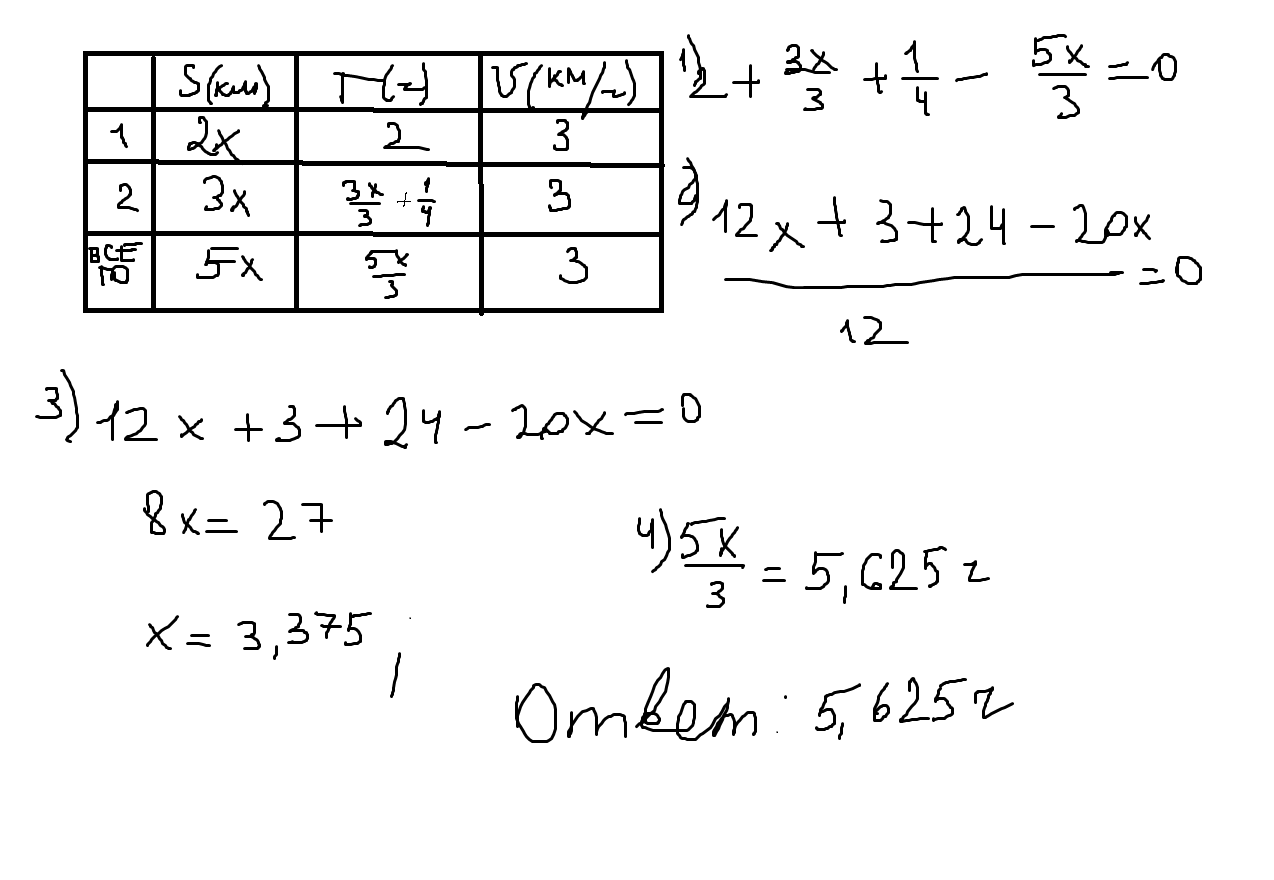 S(км) T(ч) V(км/ч)
1 2x 2 3
2 3x 3x/3 + 1/4 3
ВСЕГО 5x 5x/3 3
1) 2 + 3x/3 + 1/4 - 5x/3 = 0
2) (12x + 3 + 24 - 20x)/12 = 0
3) 12x + 3 + 24 - 20x = 0
8x = 27
x = 3,375
4) 5x/3 = 5,625 ч
Ответ: 5,625 ч